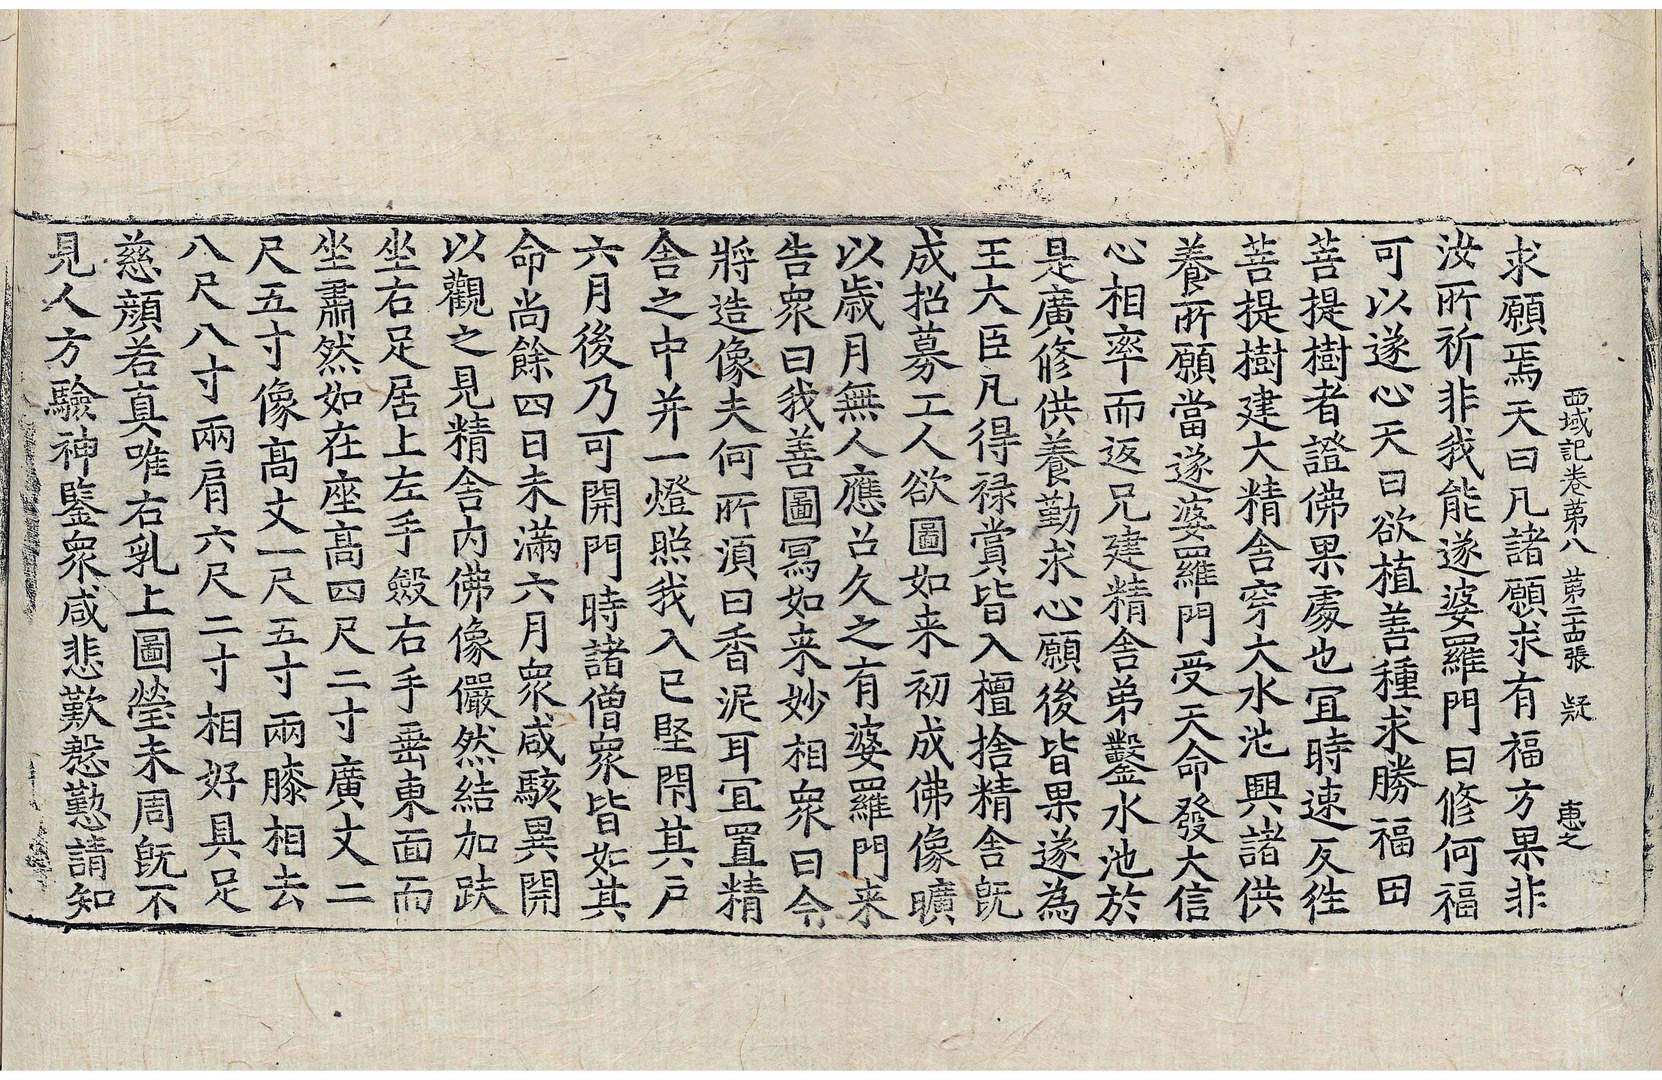 西域記卷苐八 苐二十四張 疑 惠之
求願焉天曰凡諸願求有福方果非
汝所祈非我能遂婆羅門曰修何福
可以遂心天曰欲植善種求勝福田
菩提樹者證佛果處也冝時速反徃
菩提樹建大精舍穿大水池興諸供
養所願當遂婆羅門受天命發大信
心相率而返兄建精舍弟鑿水池於
是廣修供養勤求心願後皆果遂為
王大臣凡得禄賞皆入檀捨精舍旣
成招募工人欲圖如来初成佛像曠
以歲月無人應召久之有婆羅門来
告衆曰我善圖冩如来妙相衆曰今
將造像夫何所湏曰香泥耳冝置精
舍之中并一燈照我入已堅閇其戶
六月後乃可開門時諸僧衆皆如其
命尚餘四日未滿六月衆咸駭異開
以觀之見精舍内佛像儼然結加趺
坐右足居上左手斂右手垂東面而
坐肅然如在座高四尺二寸廣丈二
尺五寸像髙丈一尺五寸兩膝相去
八尺八寸兩肩六尺二寸相好具足
慈顔若真唯右乳上圖瑩未周旣不
見人方驗神鑒衆咸悲歎慇懃請知